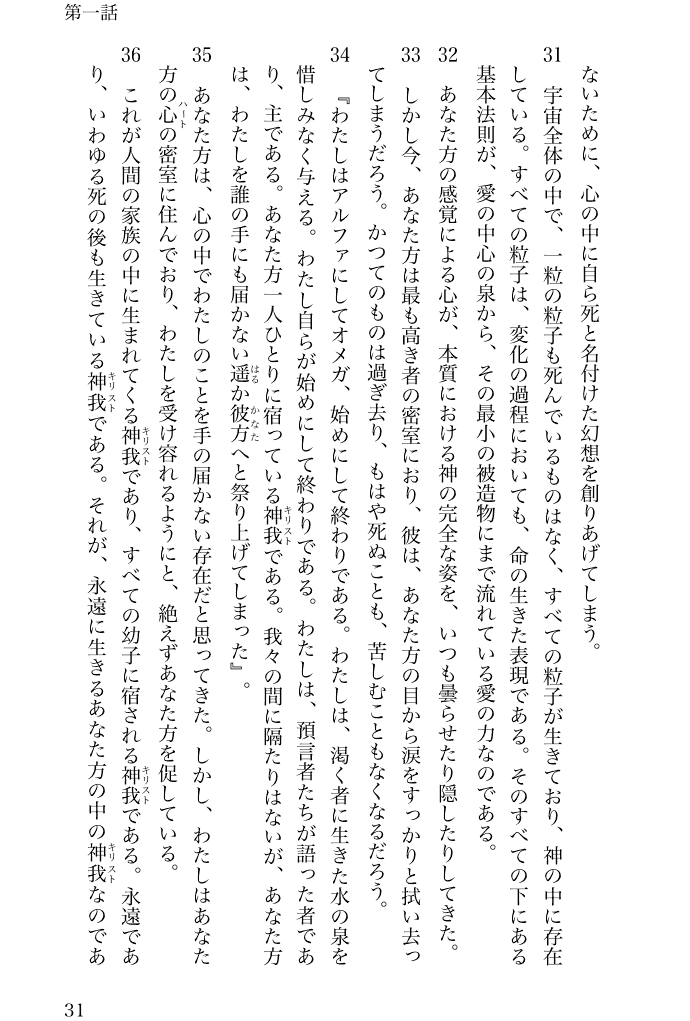 第一話
ないために、心の中に自ら死と名付けた幻想を創りあげてしまう。
31 宇宙全体の中で、一粒の粒子も死んでいるものはなく、すべての粒子が生きており、神の中に存在
している。すべての粒子は、変化の過程においても、命の生きた表現である。そのすべての下にある
基本法則が、愛の中心の泉から、その最小の被造物にまで流れている愛の力なのである。
32 あなた方の感覚による心が、本質における神の完全な姿を、いつも曇らせたり隠したりしてきた。
33 しかし今、あなた方は最も高き者の密室におり、彼は、あなた方の目から涙をすっかりと拭い去っ
てしまうだろう。かつてのものは過ぎ去り、もはや死ぬことも、苦しむこともなくなるだろう。
34 『わたしはアルファにしてオメガ、始めにして終わりである。わたしは、渇く者に生きた水の泉を
惜しみなく与える。わたし自らが始めにして終わりである。わたしは、預言者たちが語った者であ
り、主である。あなた方一人ひとりに宿っている神我キリストである。我々の間に隔たりはないが、あなた方
は、わたしを誰の手にも届かない遥はるか彼方かなたへと祭り上げてしまった』。
35 あなた方は、心の中でわたしのことを手の届かない存在だと思ってきた。しかし、わたしはあなた
方の心ハートの密室に住んでおり、わたしを受け容れるようにと、絶えずあなた方を促している。
36 これが人間の家族の中に生まれてくる神我キリストであり、すべての幼子に宿される神我キリストである。永遠であ
り、いわゆる死の後も生きている神我キリストである。それが、永遠に生きるあなた方の中の神我キリストなのであ
31